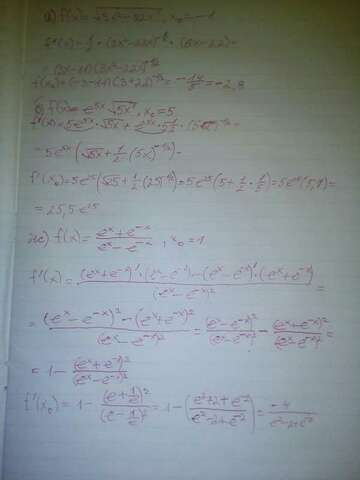 а) f(x) = √(3x²-22x), x₀ = -1
f'(x) = 1/2 · (3x²-22x)^(-1/2) · (6x-22) =
= (3x-11)(3x²-22x)^(-1/2)
f'(x₀) = (-3-11)(3+22)^(-1/2) = -14/5 = -2,8
f(x) = e^(5x) √5x, x₀ = 5
f'(x) = 5e^(5x) · √5x + e^(5x) · 1/2 · (5x)^(-1/2) =
= 5e^(5x) (√5x + 1/2 (5x)^(-1/2)) =
f'(x₀) = 5e^25 (√25 + 1/2 (25)^(-1/2)) = 5e^25 (5 + 1/2 · 1/5) = 5e^25 (5,1) =
= 25,5 e^25
ж) f(x) = (e^x + e^(-x))/(e^x - e^(-x)), x₀ = 1
f'(x) = ((e^x + e^(-x))' · (e^x - e^(-x)) - (e^x - e^(-x))' · (e^x + e^(-x)))/(e^x - e^(-x))² =
= ((e^x - e^(-x))² - (e^x + e^(-x))²)/(e^x - e^(-x))² = (e^x - e^(-x))²/(e^x - e^(-x))² - (e^x + e^(-x))²/(e^x - e^(-x))² =
= 1 - (e^x + e^(-x))²/(e^x - e^(-x))²
f'(x₀) = 1 - (e + 1/e)²/(e - 1/e)² = 1 - ((e² + 2 + e^(-2))/(e² - 2 + e^(-2))) = -4/(e² - 2 + e^(-2))